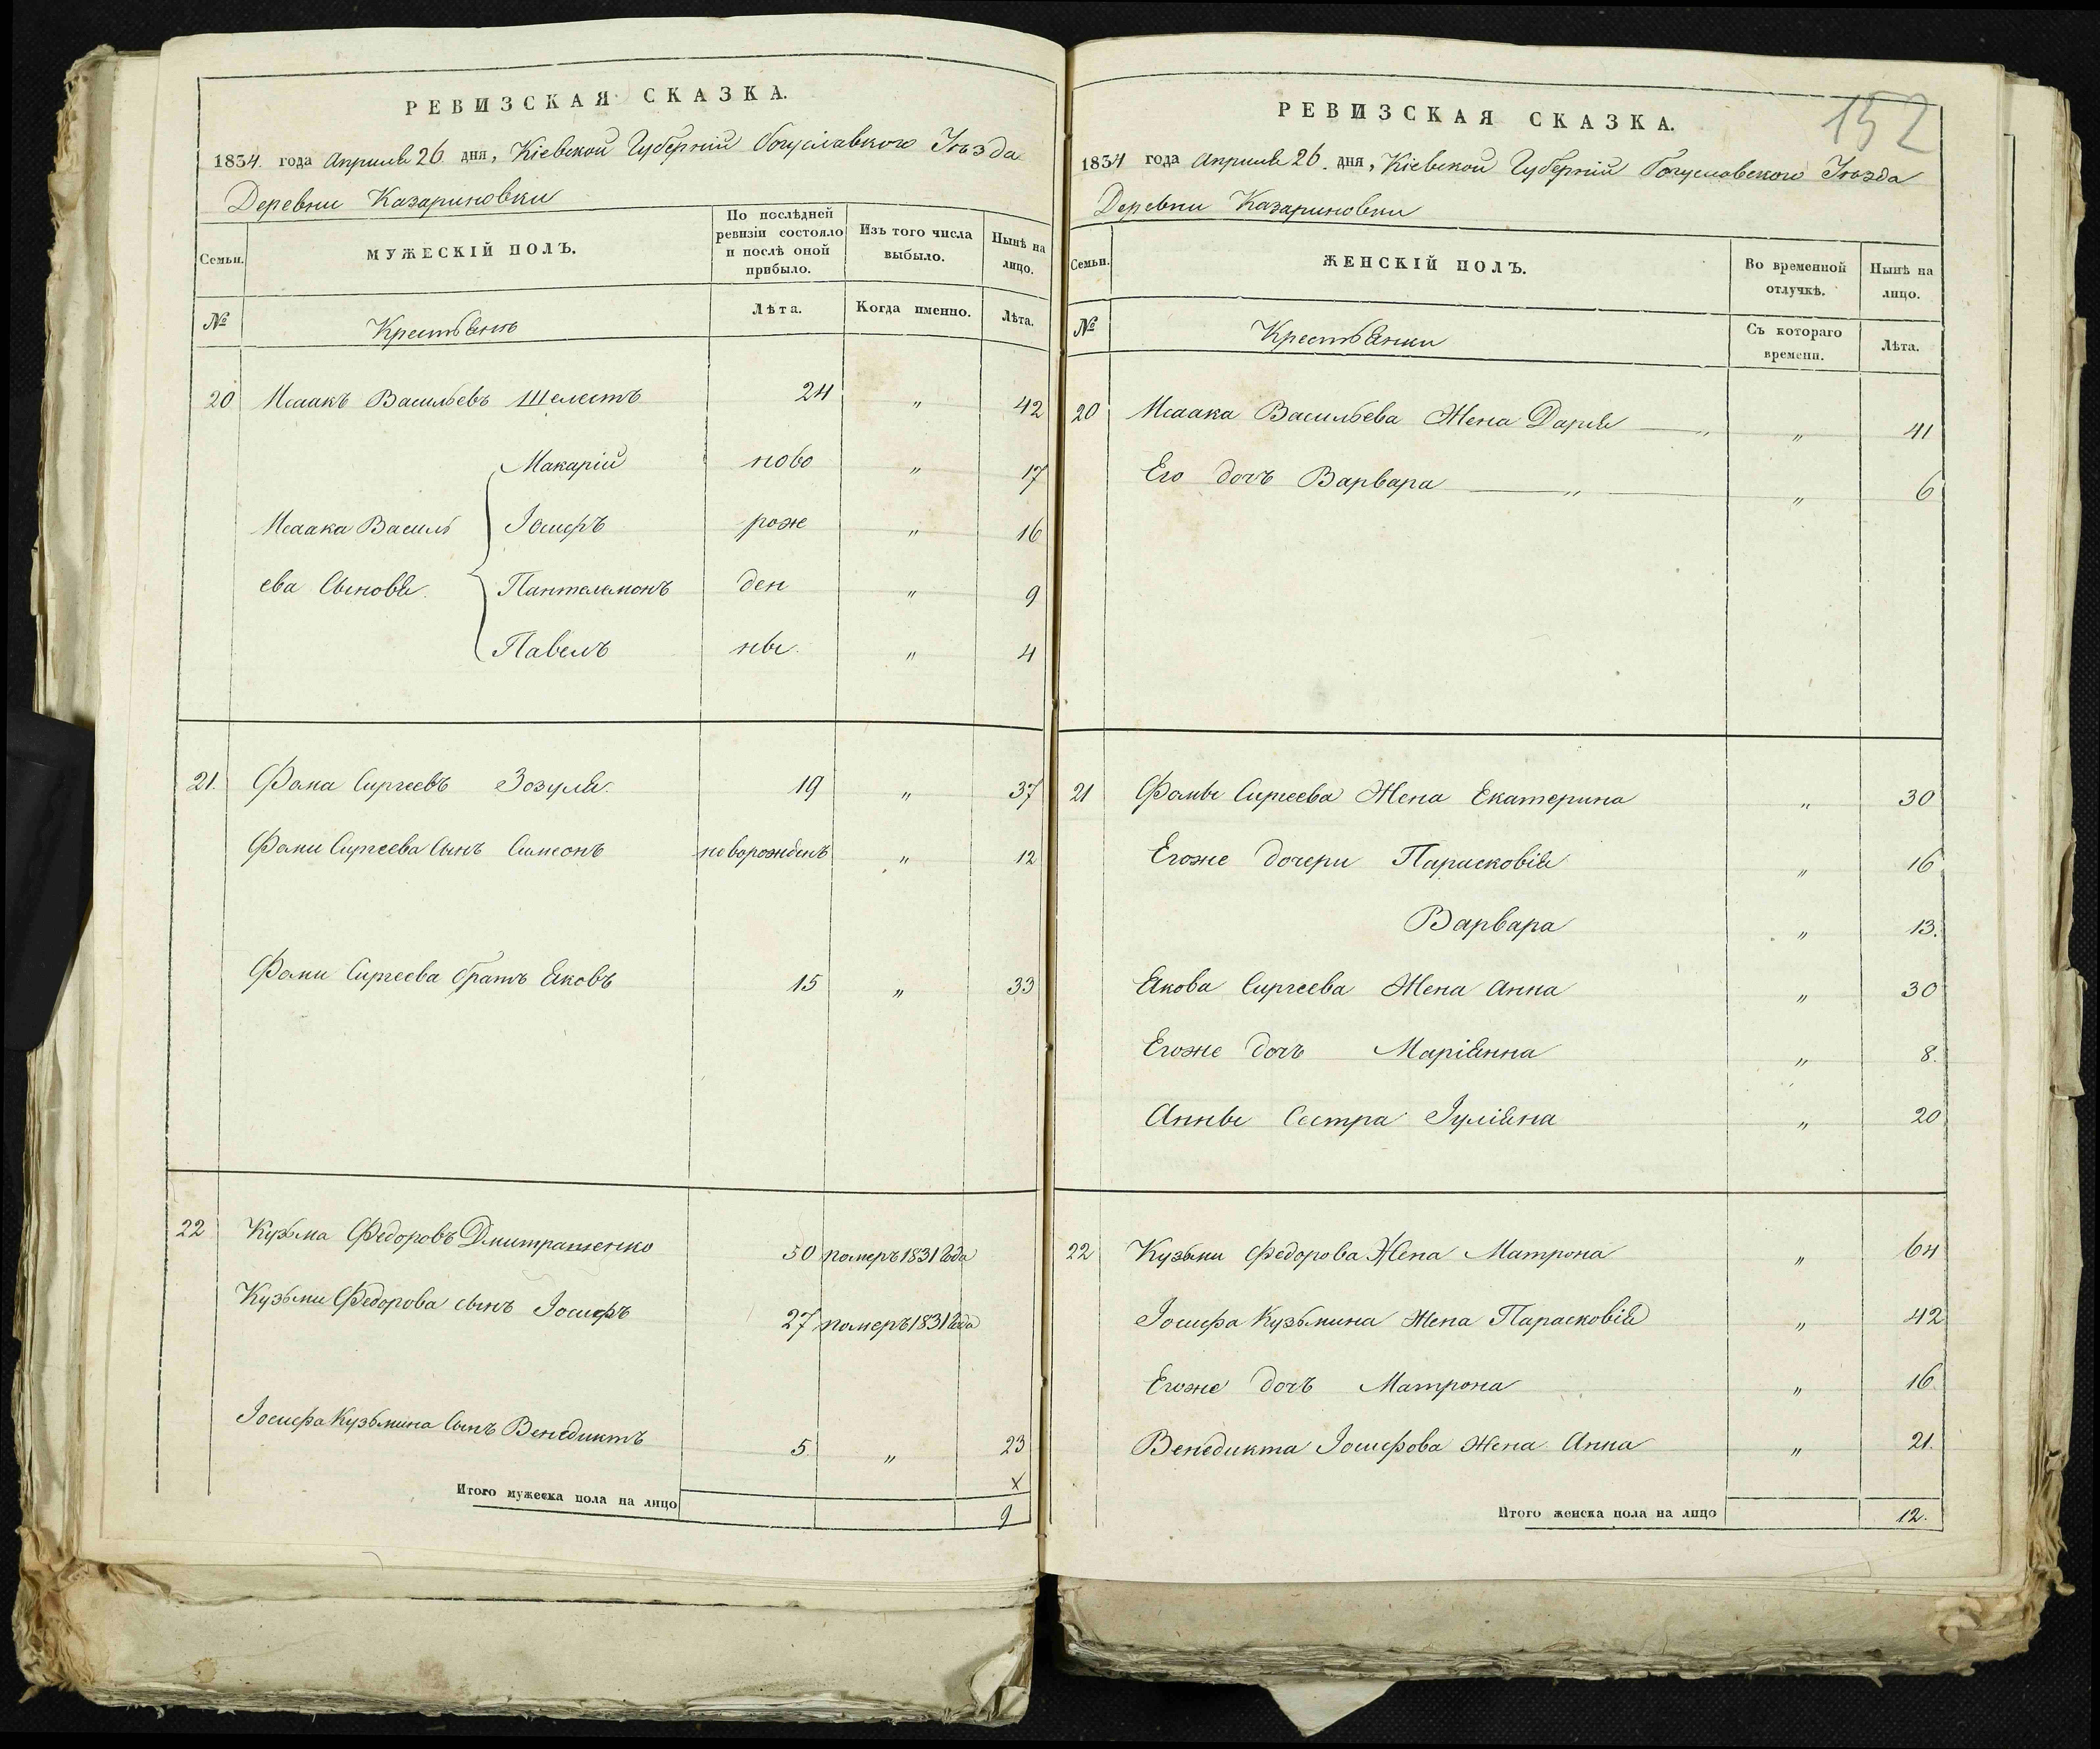 РЕВИЗСКАЯ СКАЗКА.
1834. года Апрѣля 26 дня, Кіевской Губерніи Богуславского Уѣзда
Деревни Казариновки
Семьи.
МУЖЕСКІЙ ПОЛЪ.
По послѣдней ревизіи состояло и послѣ оной прибыло.
Изъ того числа выбыло.
Нынѣ на лицо.
№
Крестьянъ
Лѣта.
Когда именно.
Лѣта.
20 Исаакъ Васильевъ Шелестъ 24 " 42
Макарій ново " 17
Исаака Василь Іосифъ рож " 16
ева Сыновья Пантелемонъ ден " 9
Павелъ ны " 4
21. Фома Сиргеевъ Зозуля 19 " 37
Фоми Сиргеева Сынъ Симеонъ новорожденъ " 12
Фоми Сиргеева братъ Яковъ 15 " 33
22 Кузьма Федоровъ Дмитрашенко 50 померъ 1831 года
Кузьми Федорова сынъ Іосифъ 27 померъ 1831 года
Іосифа Кузьмина Сынъ Венедиктъ 5. " 23
х
Итого мужеска пола на лицо 9
152
РЕВИЗСКАЯ СКАЗКА.
1834 года Апрѣля 26. дня, Кіевской Губерніи Богуславского Уѣзда
Деревни Казариновки
Семьи.
ЖЕНСКІЙ ПОЛЪ.
Во временной отлучкѣ.
Нынѣ на лицо.
№
Крестьянки
Съ котораго времени.
Лѣта.
20 Исаака Васильева Жена Дарья " 41
Его дочъ Варвара " 6
21 Фомы Сиргеева Жена Екатерина " 30
Егоже дочери Парасковія " 16
Варвара " 13.
Якова Сиргеева Жена Анна " 30
Егоже дочъ Маріянна " 8.
Анны Сестра Іуліяна " 20
22 Кузьми Федорова Жена Матрона " 64
Іосифа Кузьмина Жена Парасковія " 42
Егоже дочъ Матрона " 16
Венедикта Іосифова Жена Анна " 21.
Итого женска пола на лицо 12.